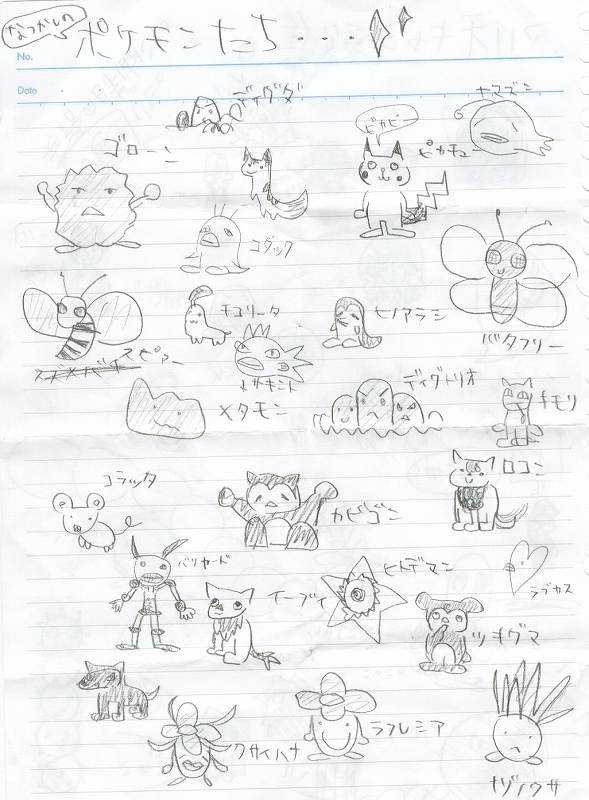 なつかしの
ポケモンたち・・・
No.
Date
ディグダ
ヤマズン
ゴローン
ピカピー
ピカチュ
コダック
チコリータ
ヒノアラシ
バタフリー
スピアー
トサキント
メタモン
ディグトリオ
キモリ
コラッタ
カビゴン
ロコン
バリヤード
イーブイ
ヒトデマン
ラブカス
ツキグマ
クサイハナ
ラフレシア
ナゾノクサ